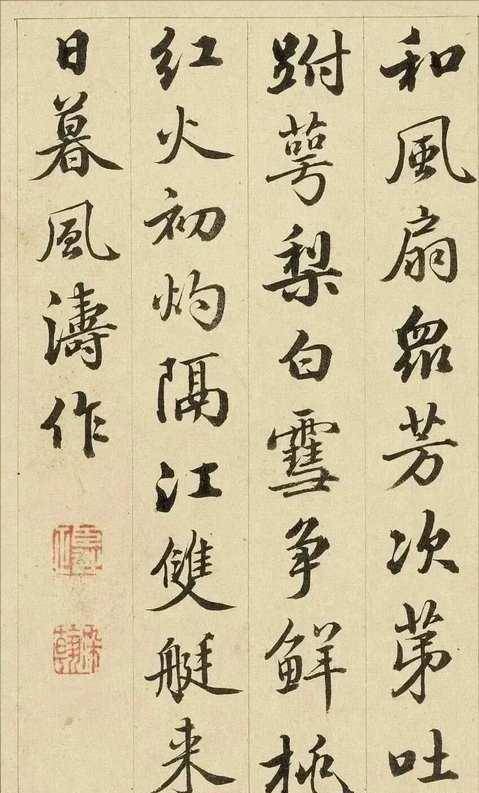 和風扇眾芳次苐吐
跗萼梨白雪争鮮桃
紅火初灼隔江雙艇来
日暮風濤作